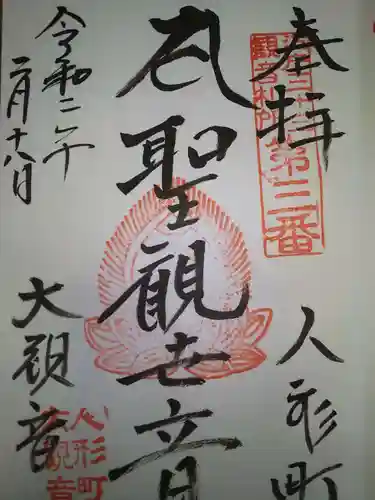 奉拝
人形町
江戸三十三
観音札所
第三番
聖観世音
令和二年
二月十八日
大観音
人形町
大観音